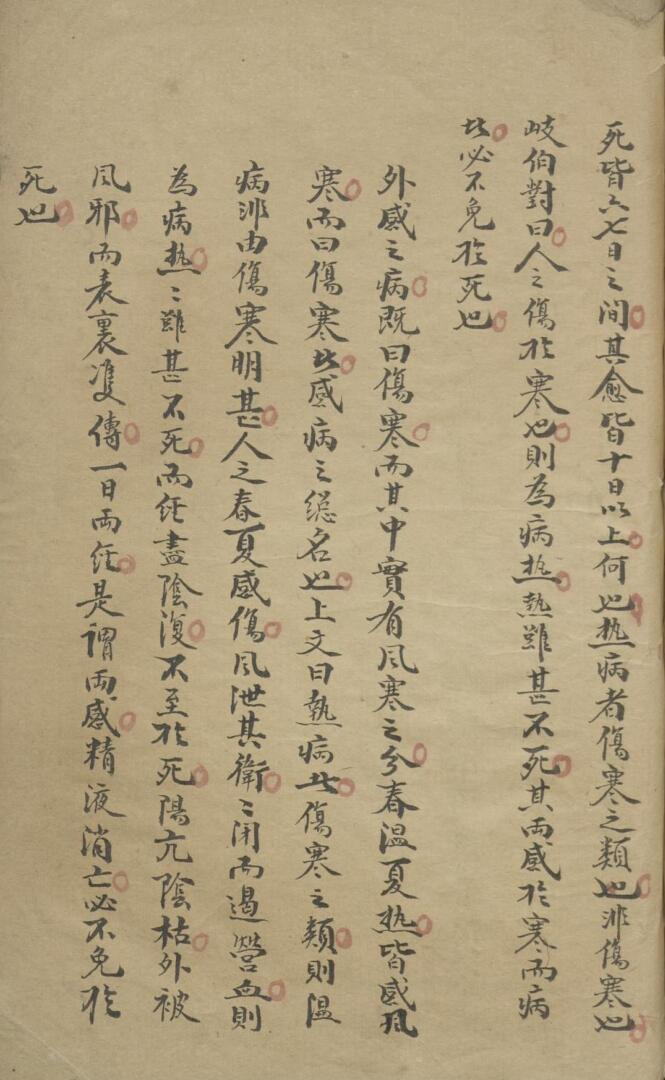 死皆六七日之间其愈皆十日以上何也热病者傷寒之類也非傷寒也
岐伯對曰人之傷於寒也則為病热熱雖甚不死其両感於寒而病
此必不免於死也
外感之病既曰傷寒而其中實有风寒之分春温夏热皆感风
寒而曰傷寒此感病之總名也上文曰熱病此傷寒之類則温
病非由傷寒明甚人之春夏感傷风泄其衛〻闭而遏營血則
為病热〻雖甚不死而経盡陰復不至於死陽亢陰枯外被
风邪而表裏双傳一日両経是謂両感精液消亡必不免於
死也